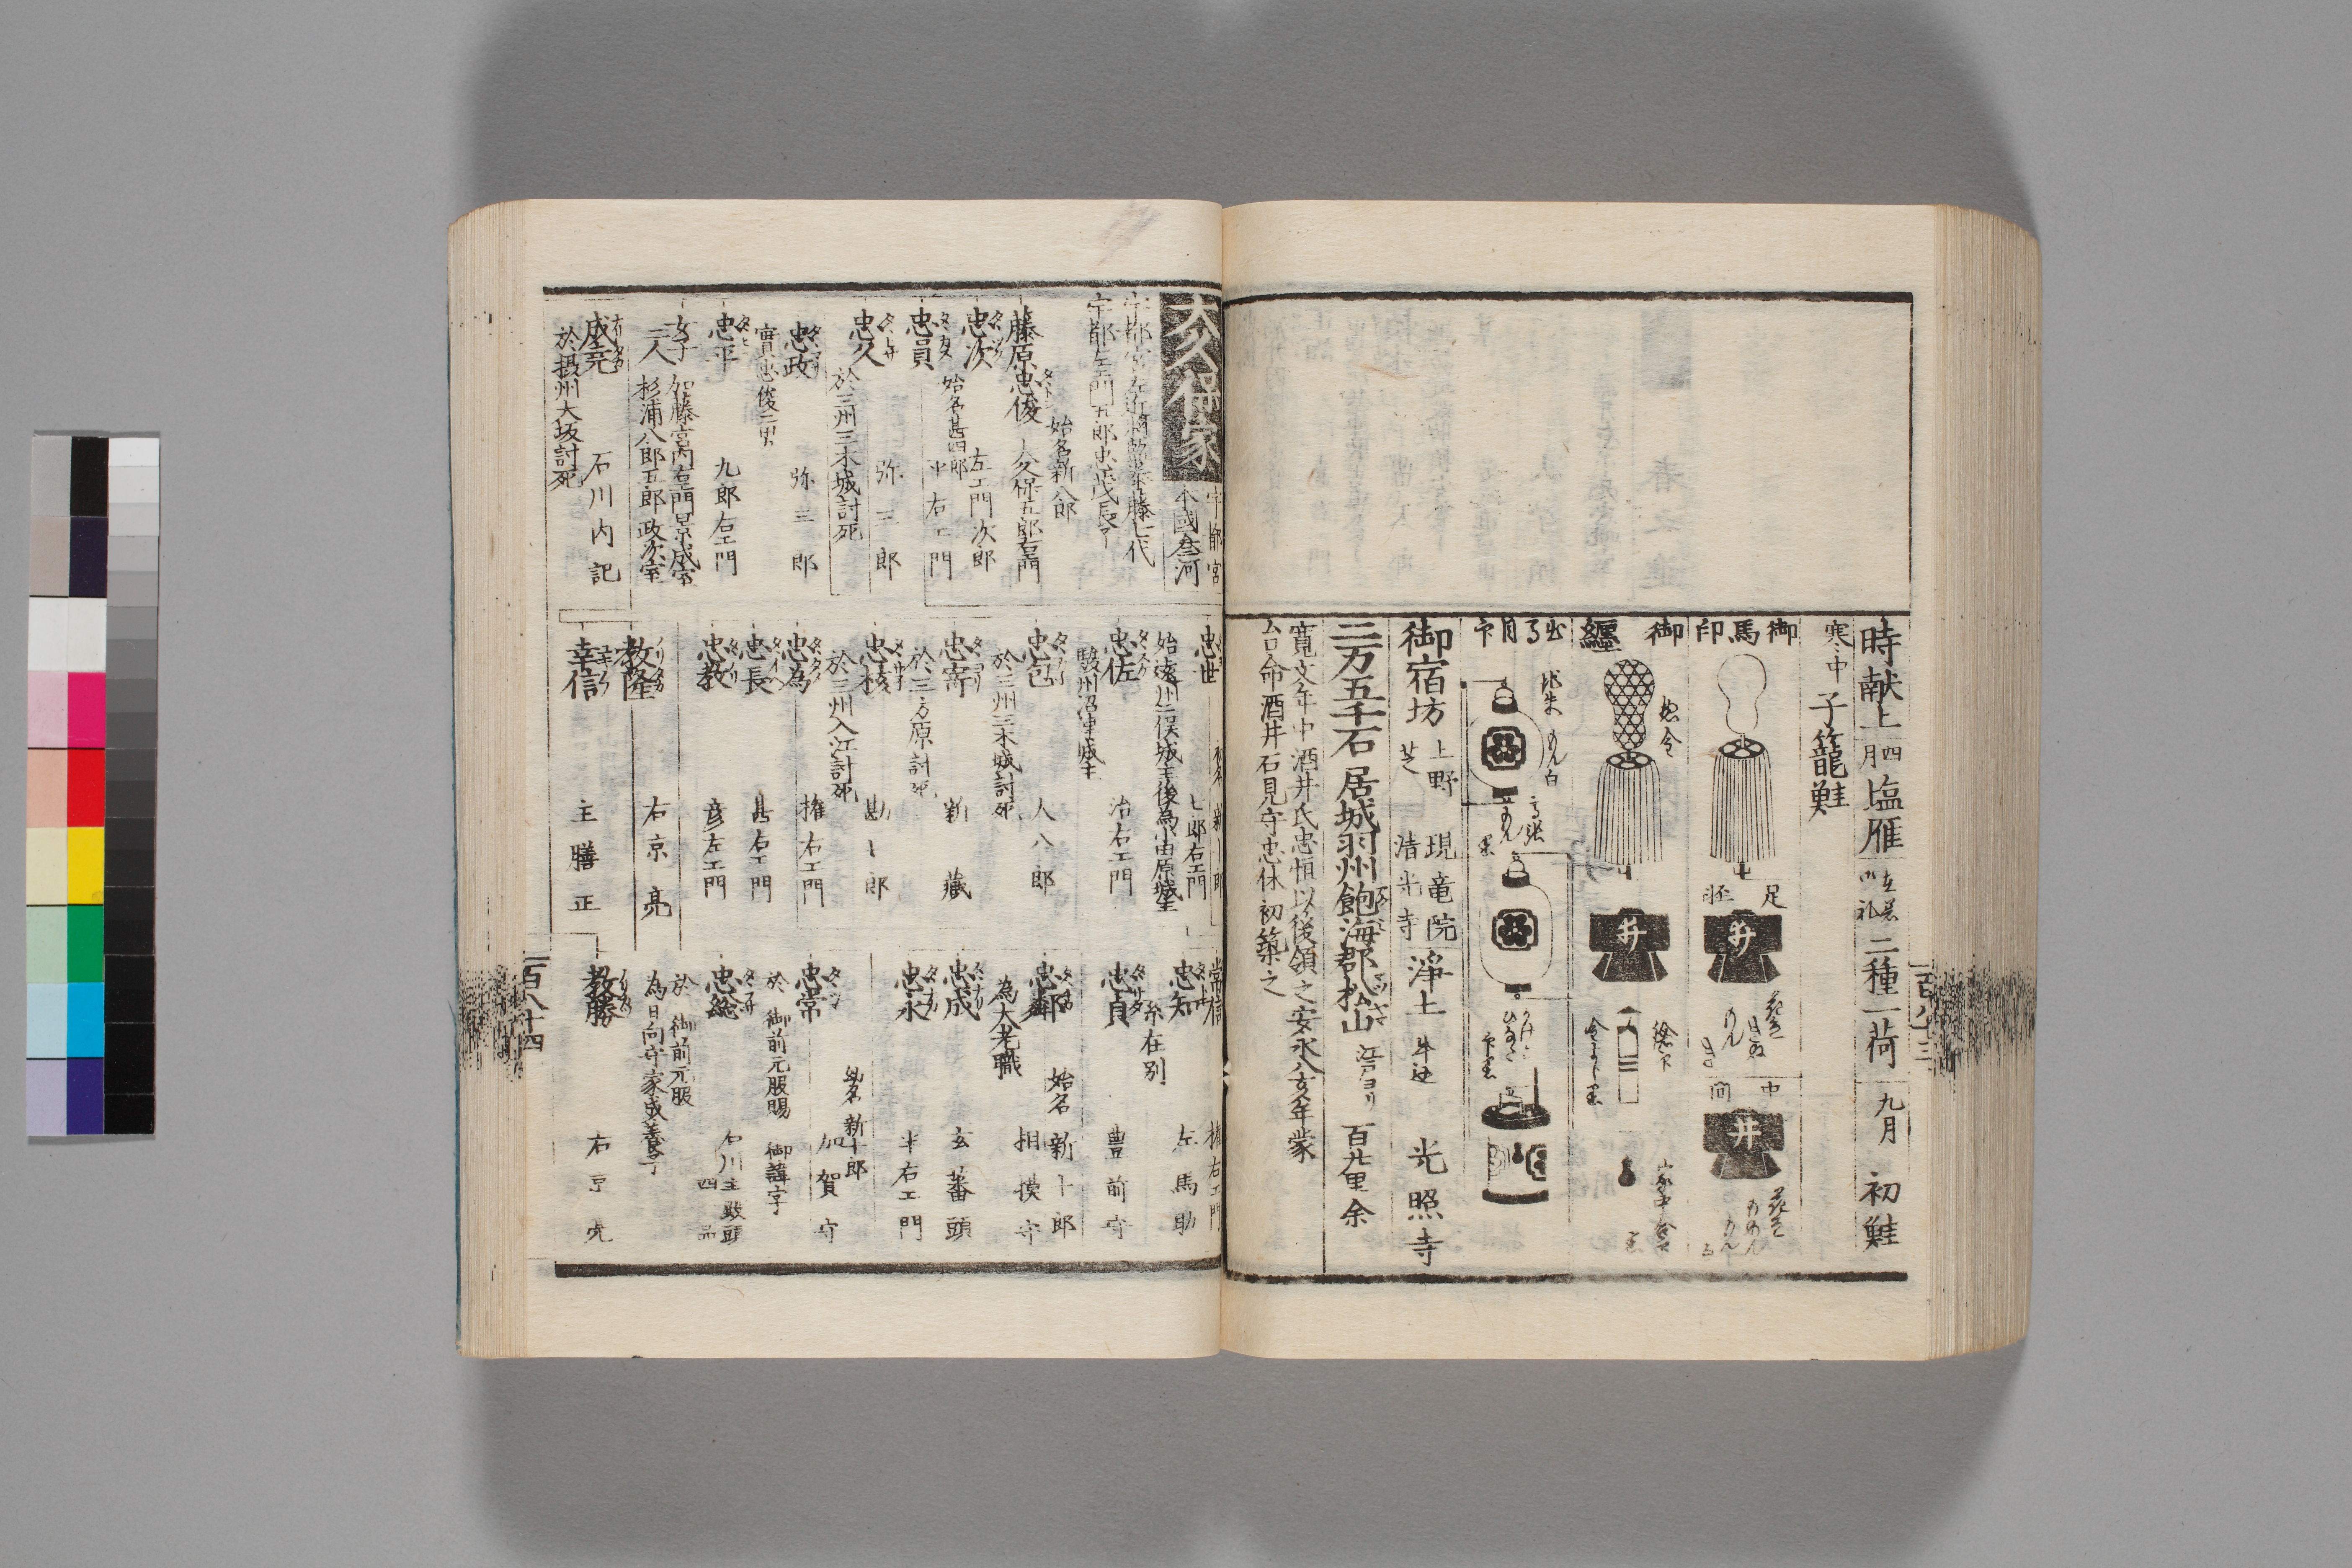 時献上
四月
塩雁
在着御礼
二種一荷
九月
初鮭
寒中
子籠鮭
御馬印
足軽
中間
御纏
惣金
出シ月印
地朱 もん白
高張
御宿坊
上野
現竜院
芝
清光寺
浄土
牛込
光照寺
二万五千石
居城羽州飽海郡松山
江戸ヨリ
百廿里余
寛文年中酒井氏忠恒以後領之安永八亥年蒙
台命酒井石見守忠休初築之
百八十三
大久保家
宇都宮
本國参河
宇都左エ門五郎忠茂長子
藤原忠俊
始名新八郎
大久保五郎右エ門
忠次
左エ門次郎
忠員
始名甚四郎
平右エ門
忠久
弥三郎
於三州三木城討死
忠政
弥三郎
實忠俊二男
忠平
九郎右エ門
女子
二人
加藤宮内右エ門景成室
杉浦八郎五郎政次室
成堯
石川内記
於摂州大坂討死
忠世
七郎右エ門
始遠州二俣城主後為小田原城主
忠佐
治右エ門
駿州沼津城主
忠包
大八郎
於三州三木城討死
忠寄
新藏
於三方原討死
忠核
勘七郎
於三州入江討死
忠為
権右エ門
忠長
甚右エ門
忠教
彦左エ門
教隆
右京亮
幸信
主膳正
常信
権右エ門
忠知
左馬助
系在別
忠貞
豊前守
忠鄰
始名
新十郎
相摸守
為大老職
忠成
玄蕃頭
忠永
半右エ門
忠常
始名新十郎
加賀守
於 御前元服賜 御諱字
忠総
石川主殿頭
四品
於 御前元服
為日向守家成養子
教勝
右京亮
百八十四